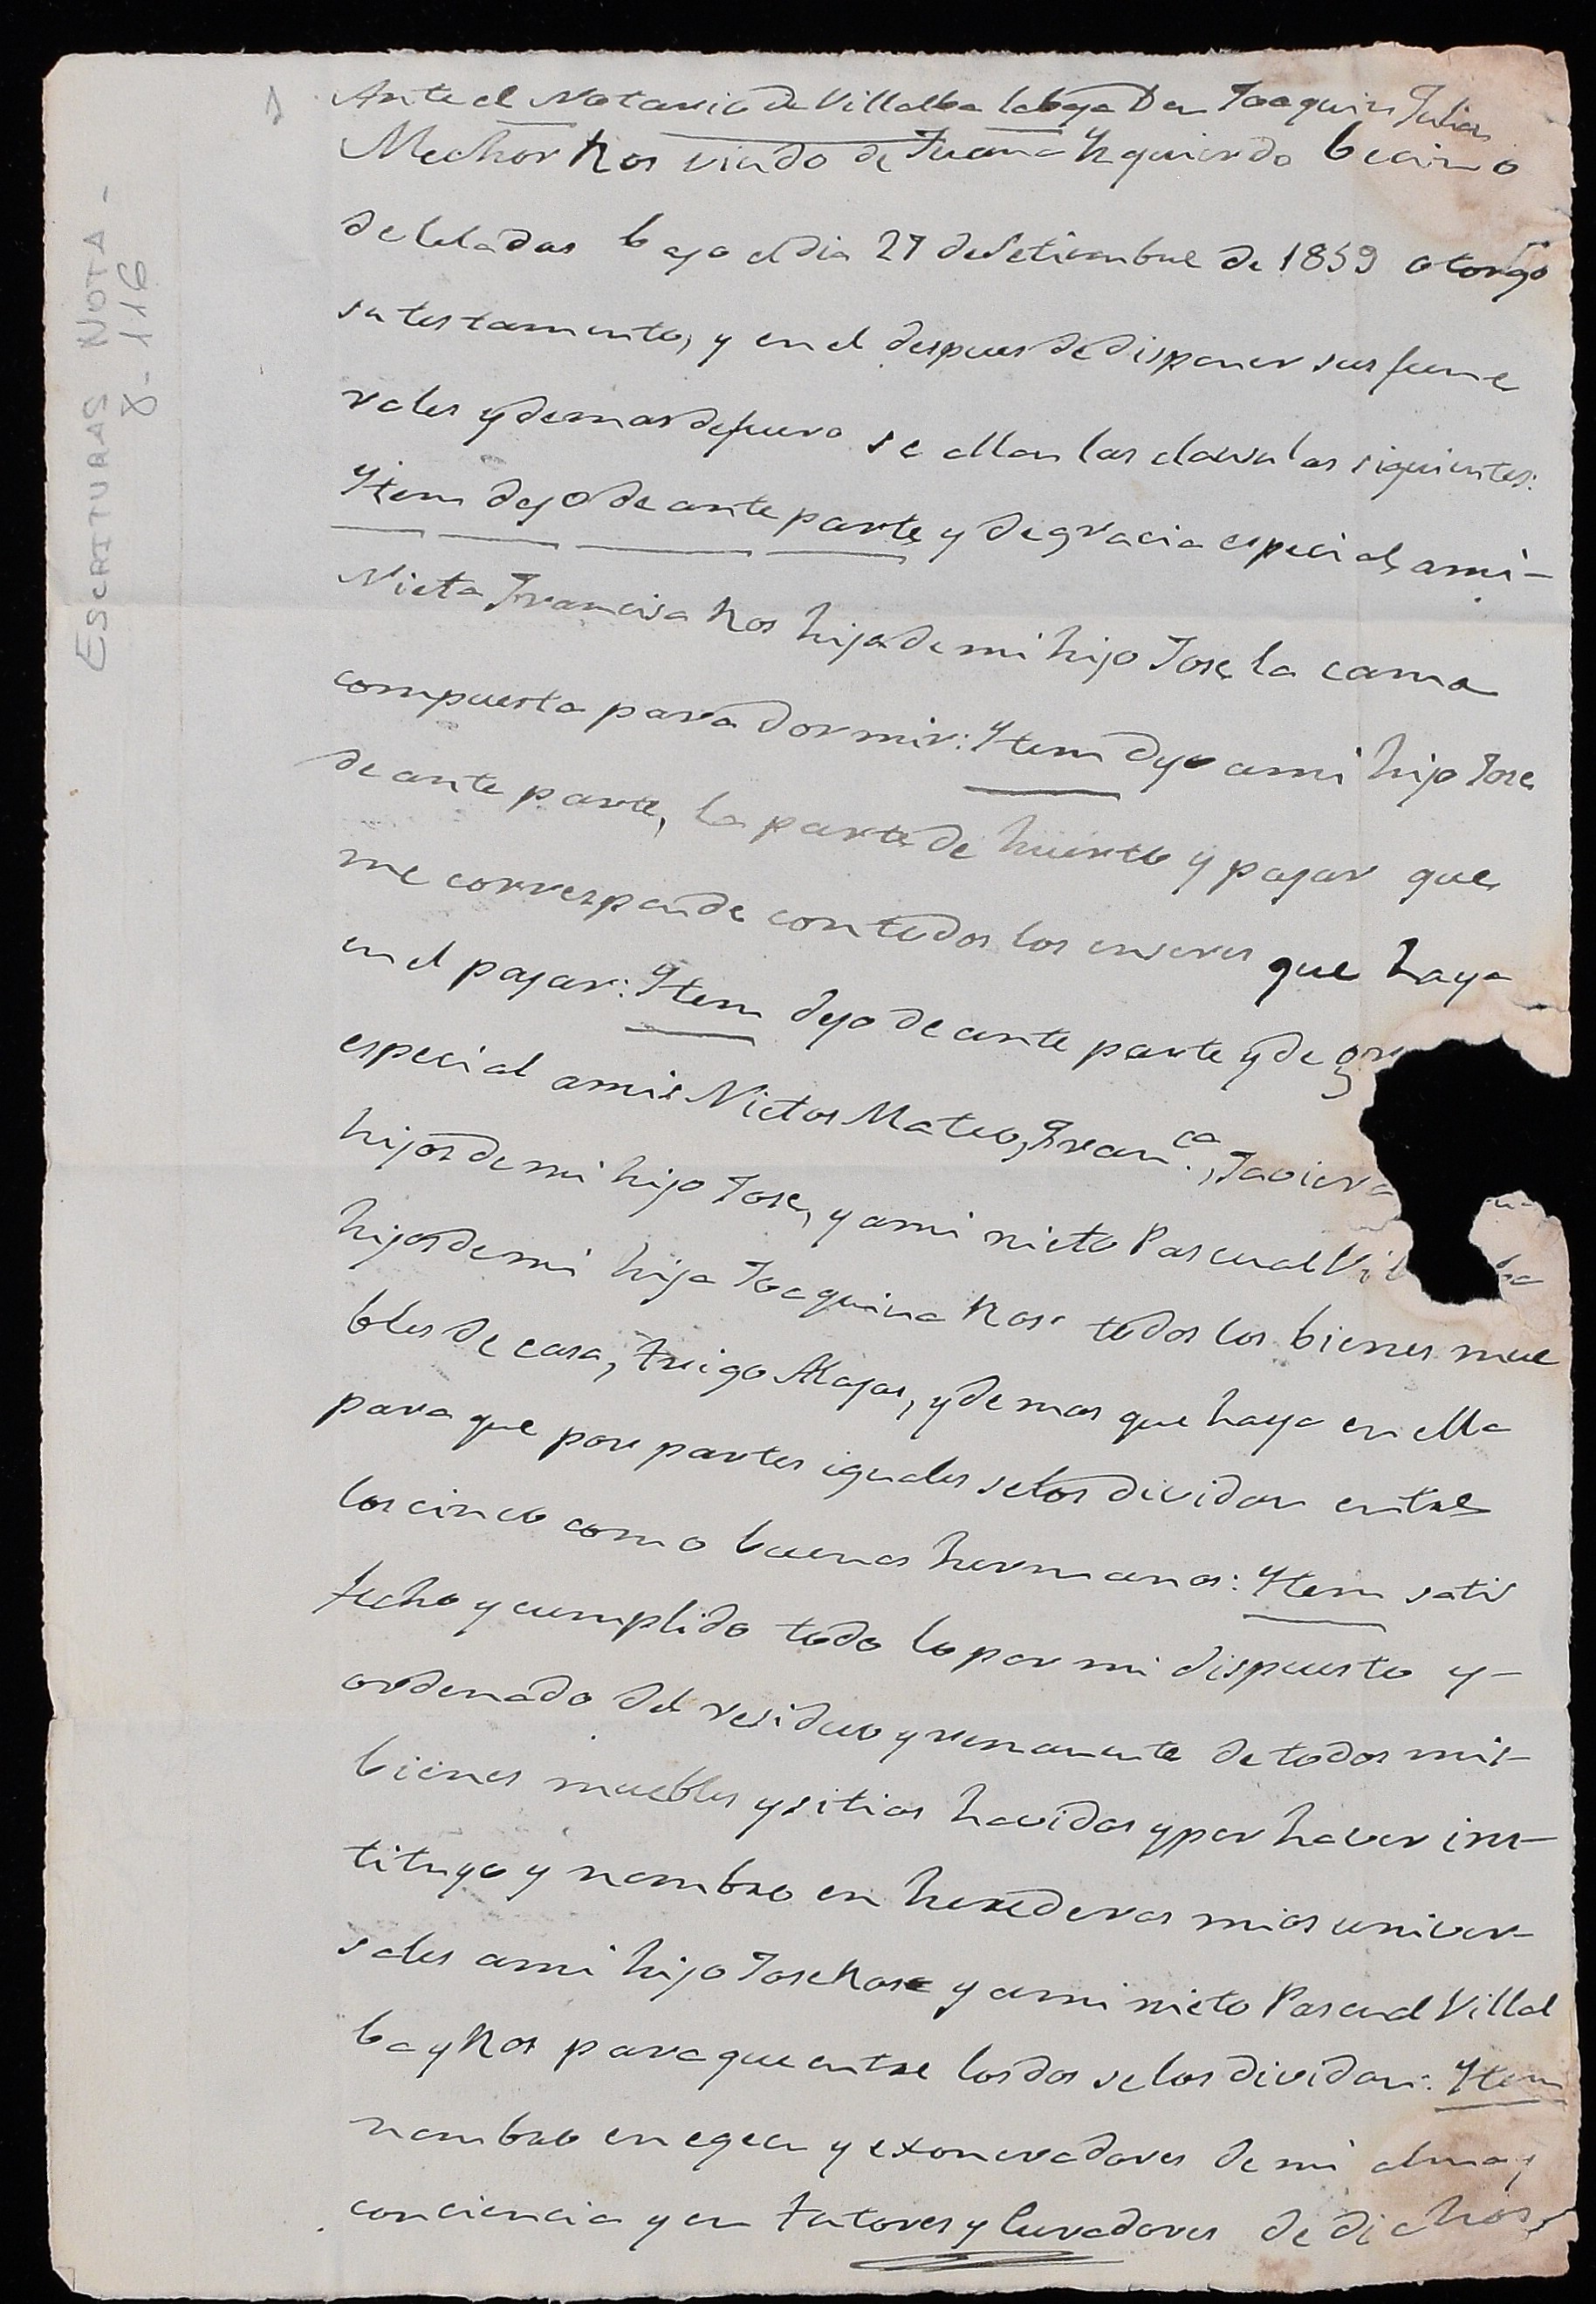 1
Ante el Notario de Villalba labaja Don Joaquin Julian
Mechor Ros viudo de Juana Yzquierdo becino
de Celadas bajo el dia 27 de Setiembre de 1859 otorgo
su testamento, y en el despues de disponer sus fune
rales y demas de fuero se allan las clausulas siguientes:
Ytem dejo de ante parte y de gracia especial, a mi-
Nieta Francisa Ros hija de mi hijo Jose, la cama
compuesta para dormir: Ytem dejo a mi hijo Jose
de ante parte, la parte de huerto y pajar que
me corresponde con todos los enseres que haya
en el pajar: Ytem dejo de ante parte y de gr
especial a mis Nietos Mateo, Fran.ca, Javiera
hijos de mi hijo Jose, y a mi nieto Pascual Vi ba
hijos de mi hija Joaquina Ros todos los bienes mue
bles de casa, trigo Alajas, y demas que haya en ella
para que por partes iguales se los dividan entre
los cinco como buenos hermanos: Ytem satis
fecho y cumplido todo lo por mi dispuesto y-
ordenado del residuo y remanente de todos mis-
bienes muebles y sitios havidos y por haver ins-
tituyo y nombro en herederos mios univer-
sales a mi hijo Jose Ros y a mi nieto Pascual Villal
ba y Ros para que entre los dos se los dividan: Ytem
nombro en egecu y exoneradores de mi alma y
conciencia y en tutores y Curadores de dichos
ESCRITURAS NOTA-
8-116